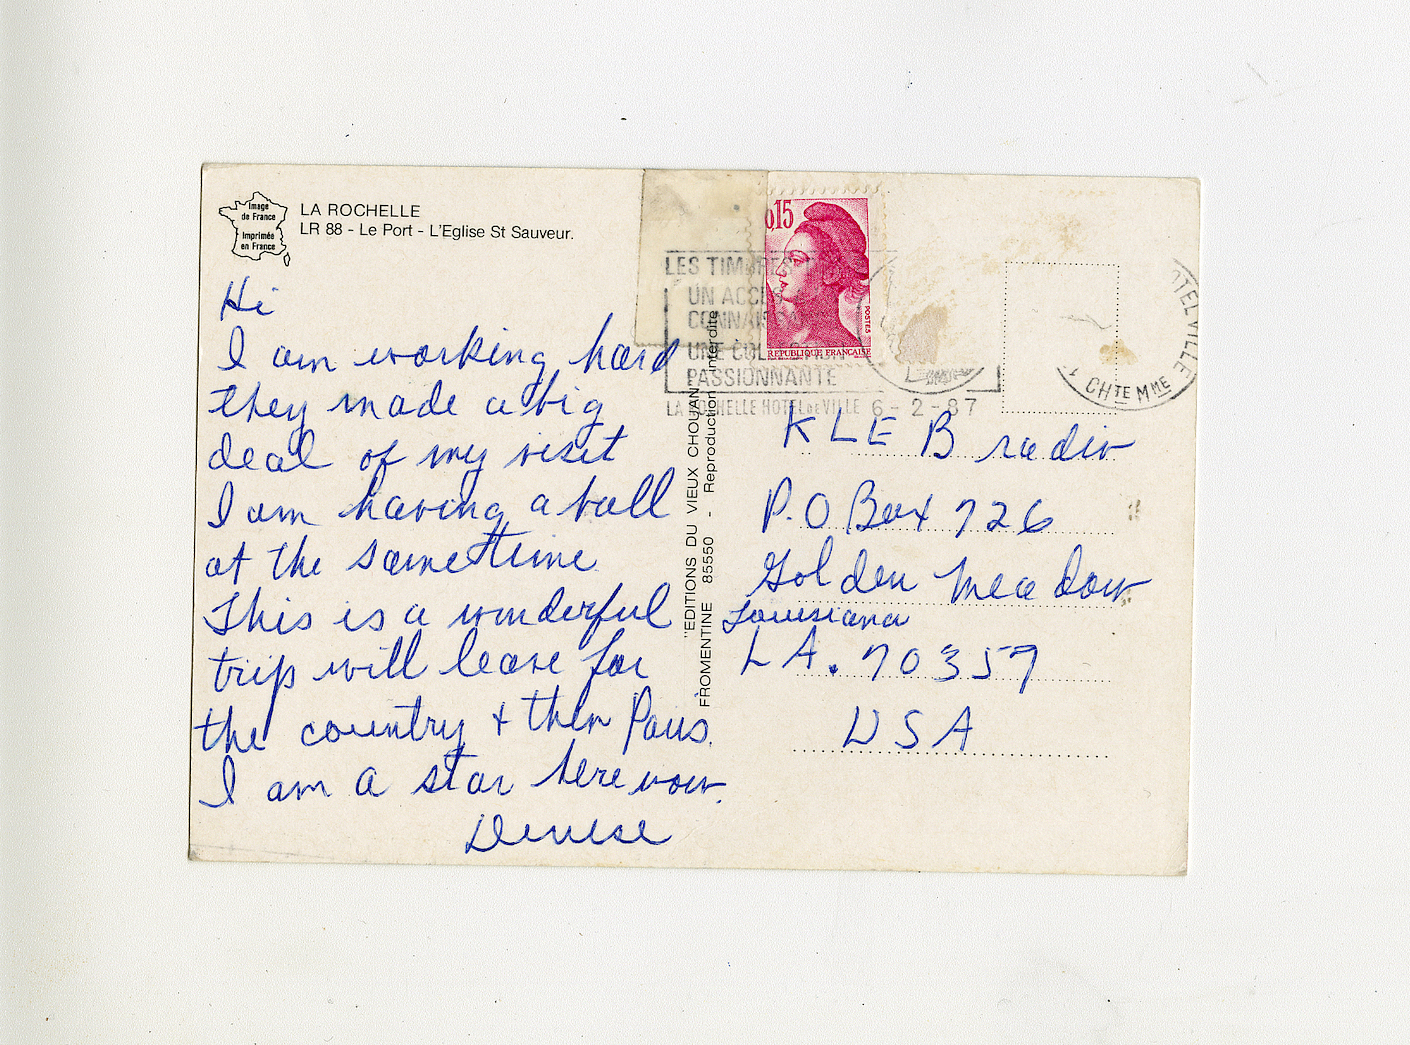 Image
de France
Imprimée
en France
LA ROCHELLE
LR 88 - Le Port - L'Eglise St Sauveur.
Hi
I am working hard
they made a big
deal of my visit
I am having a ball
at the same time
This is a wonderful
trip will leave for
the country + then Paris.
I am a star here now.
Denise
"EDITIONS DU VIEUX CHOUAN"
FROMENTINE 85550 - Reproduction interdite
0,15
POSTES
REPUBLIQUE FRANÇAISE
LES TIMBRES
UN
UNE COLLECTION
PASSIONNANTE
LA ROCHELLE HOTEL DE VILLE 6-2-87
HOTEL VILLE
CHTE MME
KLEB radio
P.O Box 726
Golden Meadow
Louisiana
LA. 70357
USA